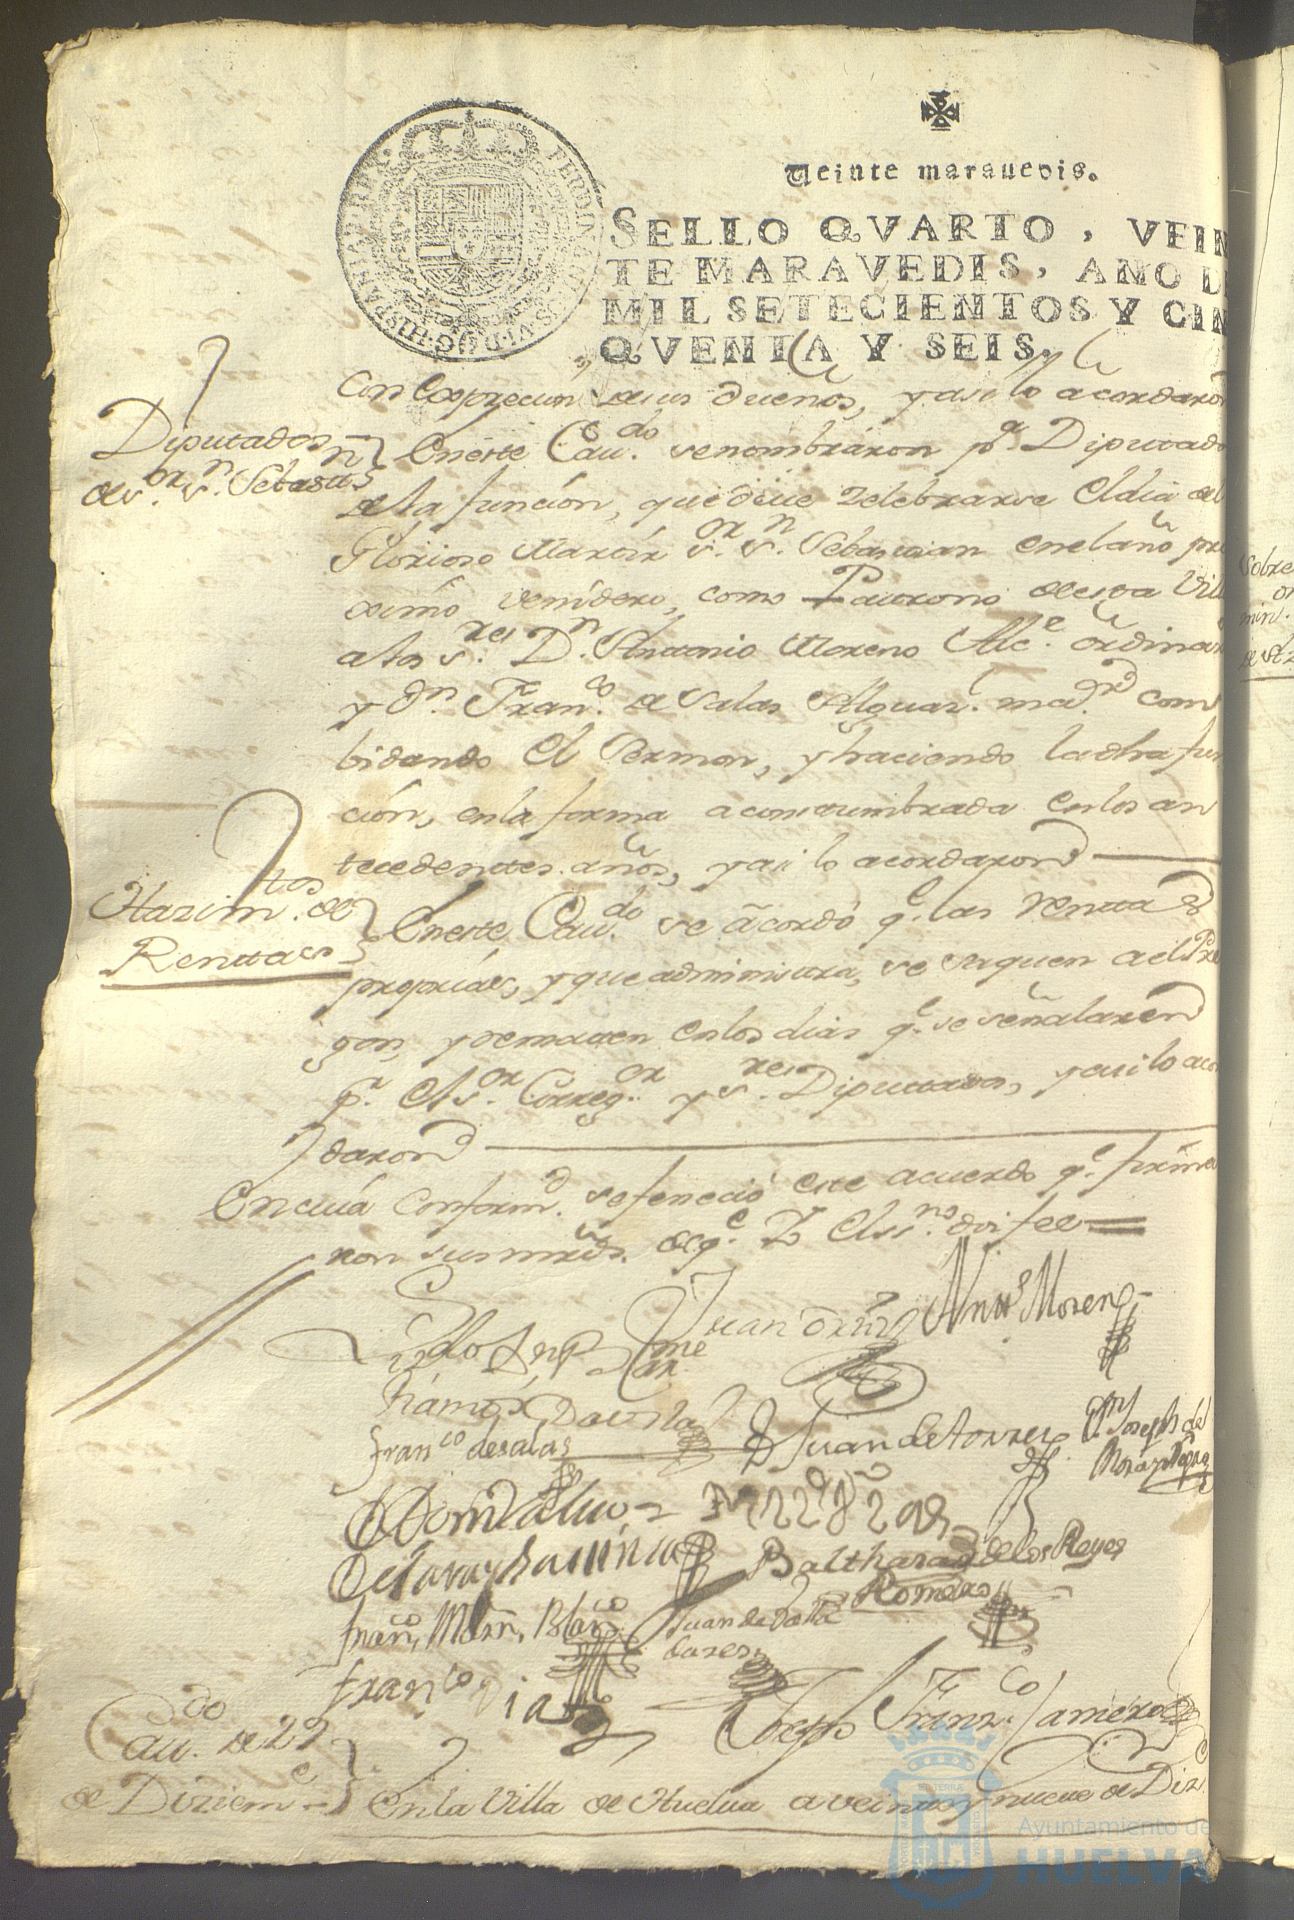 Veinte marauedis.
FERDINANDUS.VI.D.G.HISPANIAR.REX.
SELLO QVARTO, VEIN
TE MARAVEDIS, AÑO D
MIL SETECIENTOS Y CIN
QVENTA Y SEIS.
Con Expreción de sus dueños, y asi lo acordaron
Diputados
de s.or s.n Sebastn
En este Cau.do se nombraron p.a Diputado
de la función, que deue Zelebrarse El dia del
Glorioso Martír s.or s.n Sebastian en el año pro
ximo venídero, como Patrono de esta Vill
a los s.res D.n Antonio Moreno Alc.e ordinar
y d.n Fran.co de Salas Alguaz.l ma.or com
bidando El Sermon, y haciendo la dha fun
ción, en la forma acostumbrada en los an
tecedentes años, y asi lo acordaron
Hazim.tos de
Rentas
En este Cau.do se acordó q.e las Rentas
proprias, y que administra, se saquen a el Pre
gon, y rematen en los dias q.e se señalaren
p.r El s.or Correg.or y s.res Diputados, y asi lo acor
daron
En cuia Conform.d se feneció este acuerdo q.e firma
ron sus mrds. de q.e Yo El ss.no doi fee
Juan
Antto Moreno
Ramos Dauila
Fran.co de salas
Juan de torres
D.n Joseph del
de Lara y
Balthasar de los Reyes
Romero
Fran.co Marn. Blanco
Juan de
Fran.co Diaz
Joseph Franz.co Jamero
Cau.do de 29
de Diziem.e
En la Villa de Huelua a veinte y nueue de Diz
Sobre
min.
Ayuntamiento de
HUELVA